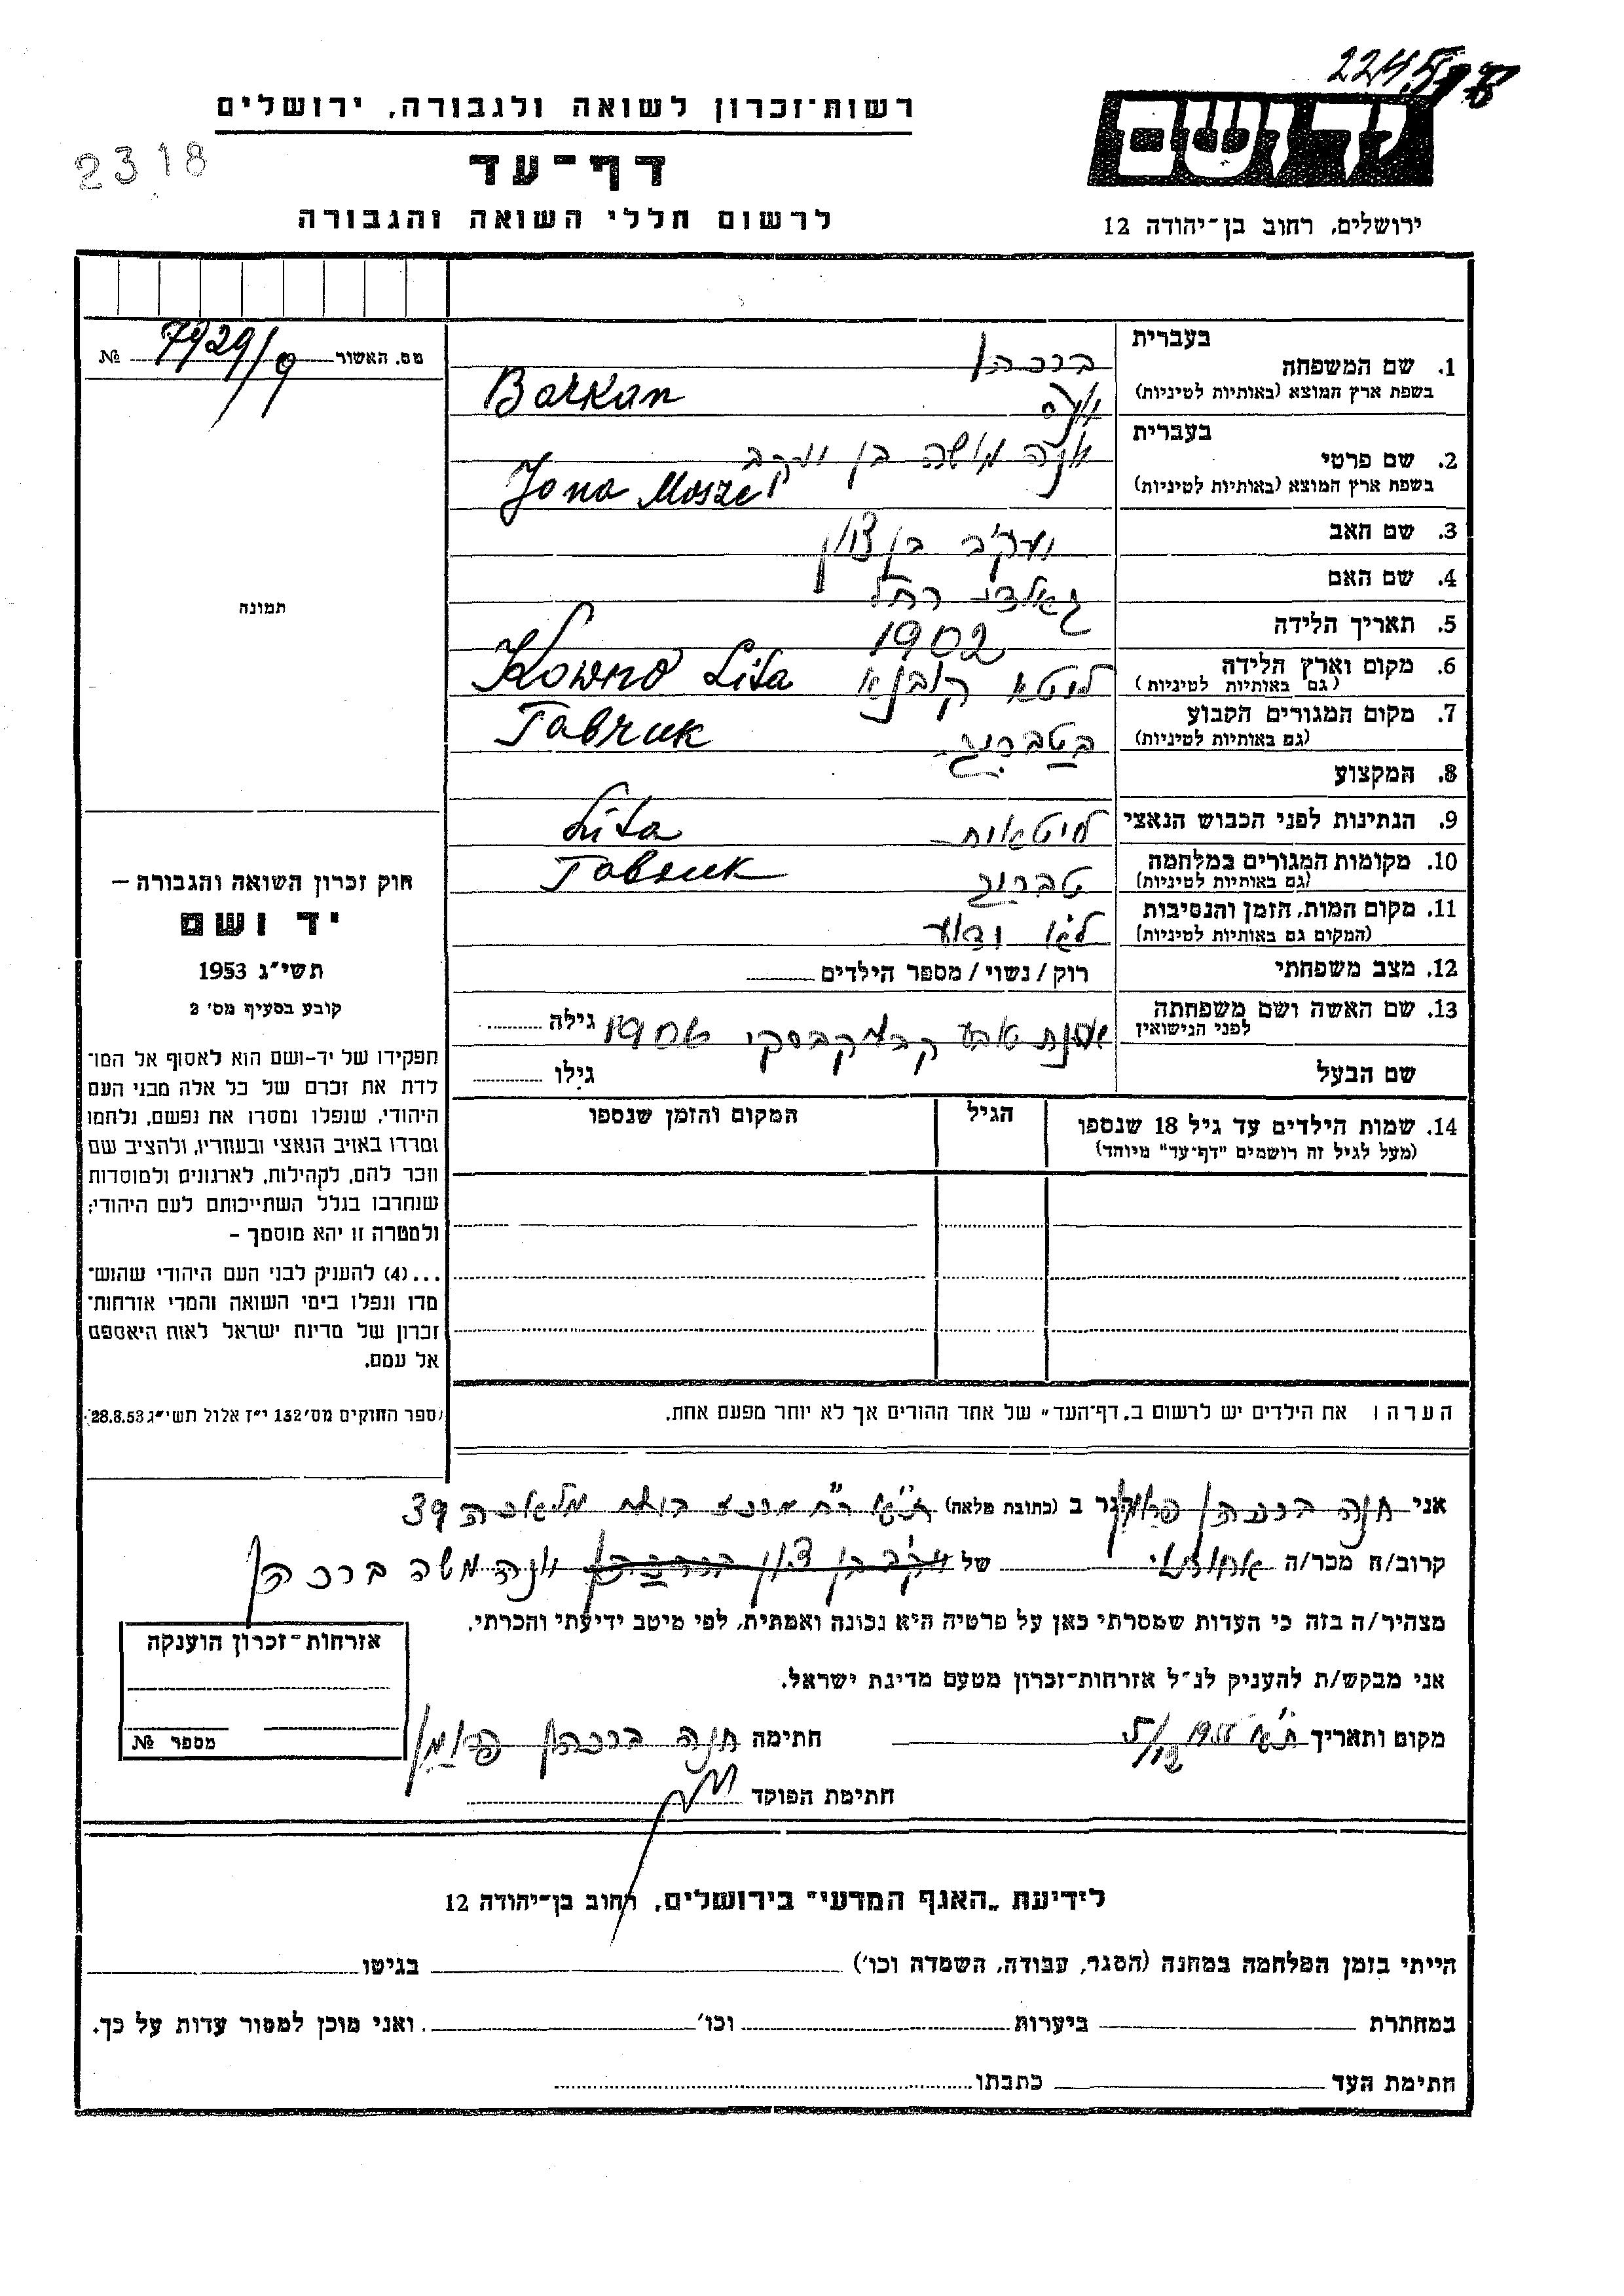 רשות־זכרון לשואה ולגבורה, ירושלים
2318
דף־עד
לרשום חללי השואה והגבורה
יד ושם
ירושלים, רחוב בן־יהודה 12
מס. האשור № 7429/9
תמונה
חוק זכרון השואה והגבורה –
יד ושם
תשי״ג 1953
קובע בסעיף מס׳ 2
תפקידו של יד-ושם הוא לאסוף אל המו־
לדת את זכרם של כל אלה מבני העם
היהודי, שנפלו ומסרו את נפשם, נלחמו
ומרדו באויב הנאצי ובעוזריו, ולהציב שם
וזכר להם, לקהילות, לארגונים ולמוסדות
שנחרבו בגלל השתייכותם לעם היהודי;
ולמטרה זו יהא מוסמך –
...(4) להעניק לבני העם היהודי שהוש־
מדו ונפלו בימי השואה והמרי אזרחות־
זכרון של מדינת ישראל לאות היאספם
אל עמם.
(ספר החוקים מס׳ 132 י״ז אלול תשי״ג 28.8.53)
בעברית
1. שם המשפחה ברכהן
בשפת ארץ המוצא (באותיות לטיניות) Barkan
בעברית
2. שם פרטי יונה מושה בן יעקב
בשפת ארץ המוצא (באותיות לטיניות) Jona Mosze
3. שם האב יעקב בן ציון
4. שם האם גאלדי רחל
5. תאריך הלידה 1902
6. מקום וארץ הלידה ליטא קובנא Kowno Lita
(גם באותיות לטיניות)
7. מקום המגורים הקבוע בטברוג Tabruk
(גם באותיות לטיניות)
8. המקצוע
9. הנתינות לפני הכבוש הנאצי ליטאית Lita
10. מקומות המגורים במלחמה טברוג Tabruk
(גם באותיות לטיניות)
11. מקום המות, הזמן והנסיבות לא ידוע
(המקום גם באותיות לטיניות)
12. מצב משפחתי רוק / נשוי / מספר הילדים
13. שם האשה ושם משפחתה גילה
לפני הנישואין
שם הבעל גילו
14. שמות הילדים עד גיל 18 שנספו הגיל המקום והזמן שנספו
(מעל לגיל זה רושמים "דף־עד" מיוחד)
הערה: את הילדים יש לרשום ב„דף־העד״ של אחד ההורים אך לא יותר מפעם אחת.
אני חנה ברכהן הגר ב (כתובת מלאה) ת״א רח׳ מלאכה 39
קרוב/ה מכר/ה אחותי של יעקב בן ציון יונה משה ברכהן
מצהיר/ה בזה כי העדות שמסרתי כאן על פרטיה היא נכונה ואמתית, לפי מיטב ידיעתי והכרתי.
אני מבקש/ת להעניק לנ״ל אזרחות־זכרון מטעם מדינת ישראל.
מקום ותאריך ת״א 5/12 חתימה חנה ברכהן
חתימת הפוקד
אזרחות־זכרון הוענקה
מספר №
לידיעת „האגף המדעי״ בירושלים, רחוב בן־יהודה 12
הייתי בזמן המלחמה במחנה (הסגר, עבודה, השמדה וכו׳) בגיטו
במחתרת ביערות וכו׳ ואני מוכן למסור עדות על כך.
חתימת העד כתבתו